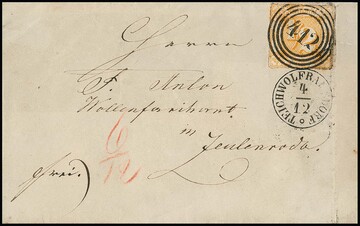 Herrn
412
F. Anton
TEICHWOLFRAMSDORF
4
12
Wollenfabrikant
in
Zeulenroda.
frei.
6
12